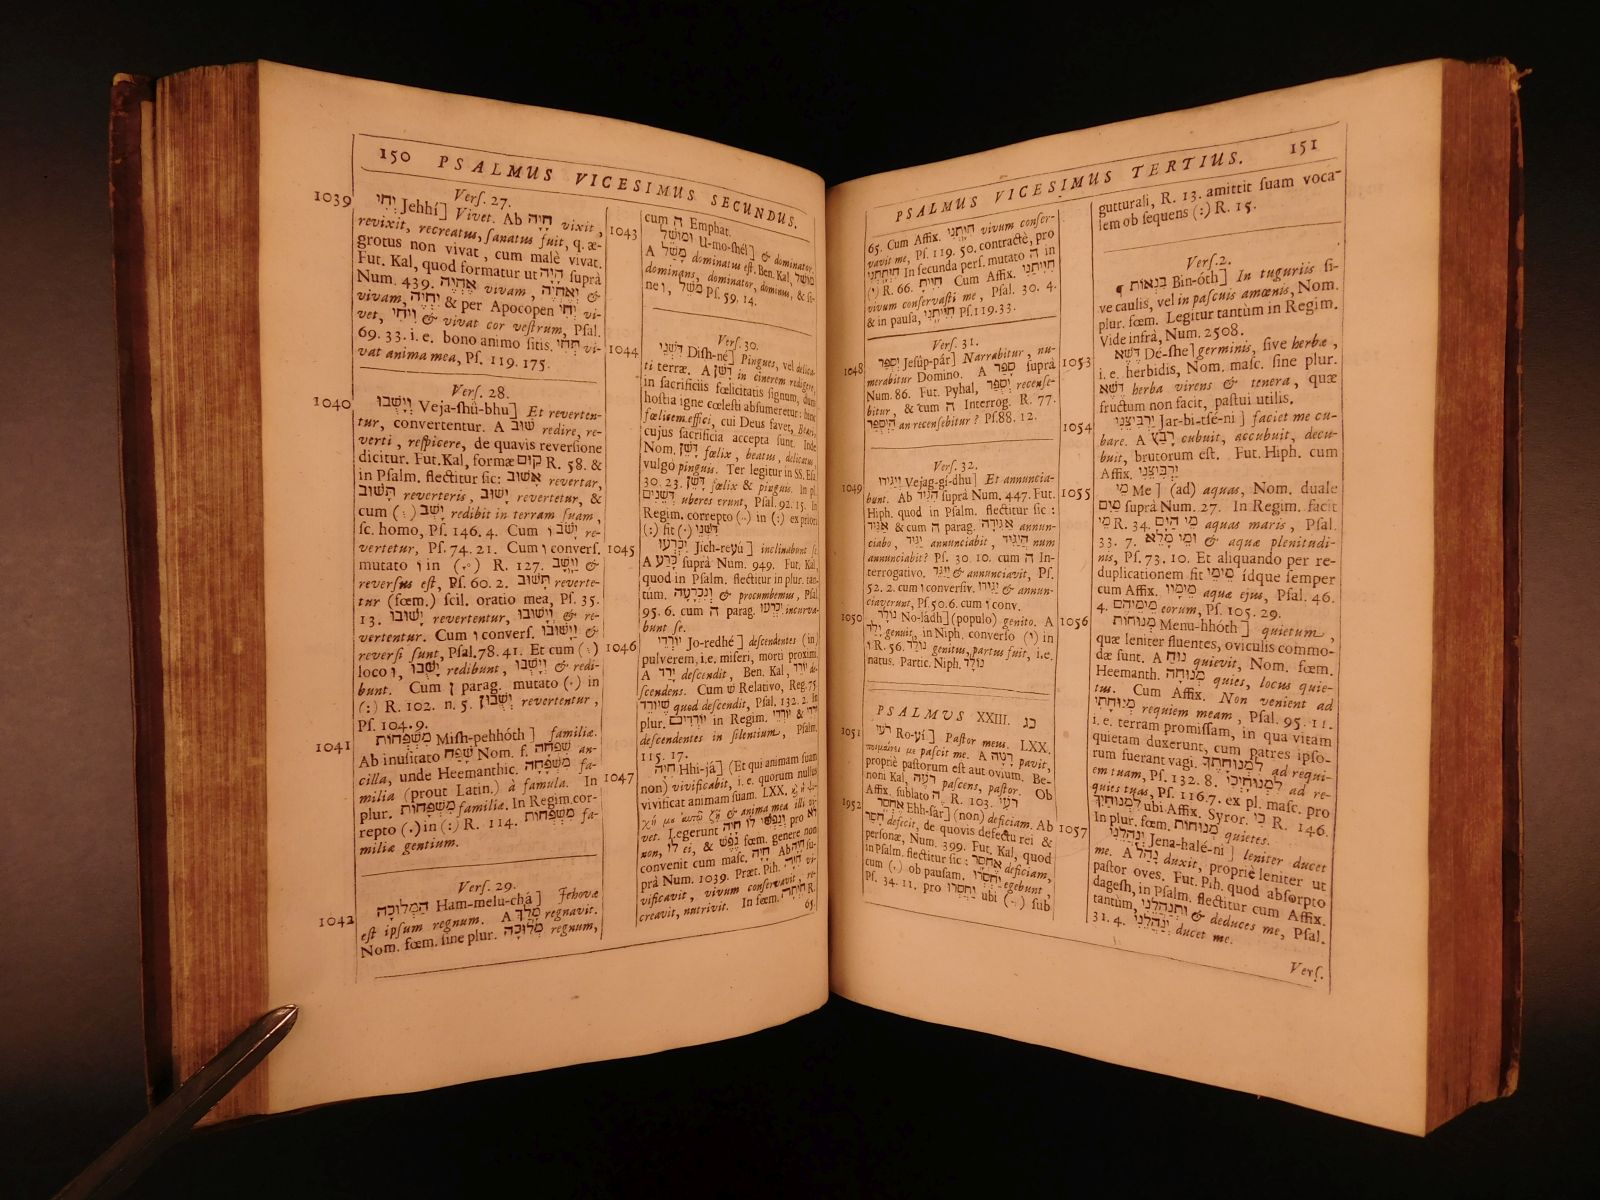 150 PSALMUS VICESIMUS SECUNDUS.
Vers. 27.
1039 יְחִי Jehhí] Vivet. Ab חָיָה vixit,
revixit, recreatus, sanatus fuit, q. æ-
grotus non vivat, cum malè vivat.
Fut. Kal, quod formatur ut הָיָה suprà
Num. 439. אֶחְיֶה vivam, וְאֶחְיֶה &
vivam, יִחְיֶה & per Apocopen יְחִי vi-
vet, וִיחִי & vivat cor vestrum, Psal.
69. 33. i. e. bono animo sitis. תְּחִי vi-
vat anima mea, Ps. 119. 175.
Vers. 28.
1040 וְיָשֻׁבוּ Veja-shü-bhu] Et reverten-
tur, convertentur. A שׁוּב redire, re-
verti, respicere, de quavis reversione
dicitur. Fut. Kal, formæ קוּם R. 58. &
in Psalm. flectitur sic: אָשׁוּב revertar,
תָּשׁוּב reverteris, יָשׁוּב revertetur, &
cum יָשֻׁב redibit in terram suam,
sc. homo, Ps. 146. 4. Cum יָשֹׁב re-
vertetur, Ps. 74. 21. Cum ו convers.
mutato ו in R. 127. וַיָּשָׁב &
reversus est, Ps. 60. 2. תָּשׁוּב reverte-
tur (fœm.) scil. oratio mea, Ps. 35.
13. יָשׁוּבוּ revertentur, וְיָשׁוּבוּ & re-
vertentur. Cum ו convers. וַיָּשׁוּבוּ &
reversi sunt, Psal. 78. 41. Et cum
loco ו, יָשֻׁבוּ redibunt, וְיָשֻׁבוּ & redi-
bunt. Cum ן parag. mutato (.) in
(:) R. 102. n. 5. יְשֻׁבוּן revertentur,
Ps. 104. 9.
1041 מִשְׁפְּחוֹת Mish-pehhóth] familiæ.
Ab inusitato שָׁפַח Nom. f. שִׁפְחָה an-
cilla, unde Heemanthic. מִשְׁפָּחָה fa-
milia (prout Latin.) à famula. In
plur. מִשְׁפָּחוֹת familiæ. In Regim. cor-
repto (.) in (:) R. 114. מִשְׁפְּחוֹת fa-
miliæ gentium.
Vers. 29.
1042 הַמְּלוּכָה Ham-melu-chá] Jehovæ
est ipsum regnum. A מָלַךְ regnavit.
Nom. fœm. sine plur. מְלוּכָה regnum,
cum ה Emphat.
1043 וּמוֹשֵׁל U-mo-shél] & dominator.
A מָשַׁל dominatus est. Ben. Kal, מוֹשֵׁל
dominans, dominator, dominus, & si-
ne ו, מֹשֵׁל Ps. 59. 14.
Vers. 30.
1044 דִּשְׁנֵי Dish-né] Pingues, vel delica-
ti terræ. A דִּשֵּׁן in cinerem redigere,
in sacrificiis fœlicitatis signum, dum
hostia igne cœlesti absumeretur: hinc
fœlicem effici, cui Deus favet,
cujus sacrificia accepta sunt. Inde
Nom. דָּשֵׁן fœlix, beatus, delicatus
vulgo pinguis. Ter legitur in SS. Esa
30. 23. דָּשֵׁן fœlix & pinguis. In pl.
דְּשֵׁנִים uberes erunt, Psal. 92. 15. In
Regim. correpto (..) in (:) ex priori
(:) fit (.) דִּשְׁנֵי
1045 יִכְרְעוּ Jich-reyú] inclinabunt se.
A כָּרַע suprà Num. 949. Fut. Kal,
quod in Psalm. flectitur in plur. tan-
tùm. וְנִכְרָעָה & procumbemus, Psal.
95. 6. cum ה parag. יִכְרְעוּ incurva-
bunt se.
1046 יוֹרְדֵי Jo-redhé] descendentes (in)
pulverem, i. e. miseri, morti proximi.
A יָרַד descendit, Ben. Kal, יוֹרֵד de-
scendens. Cum שׁ Relativo, Reg. 75.
שֶׁיּוֹרֵד quod descendit, Psal. 132. 2. In
plur. יוֹרְדִים in Regim. יוֹרְדֵי &
descendentes in silentium, Psalm.
115. 17.
1047 חִיָּה Hhi-já] (Et qui animam suam
non) vivificabit, i. e. quorum nullus
vivificat animam suam. LXX.
& anima mea illi vi-
vet. Legerunt וְנַפְשִׁי לוֹ חַיָּה pro לֹא
non, לוֹ ei, & נֶפֶשׁ fœm. genere non
convenit cum masc. חִיָּה Ab חָיָה su-
prà Num. 1039. Præt. Pih. חִיָּה vi-
vificavit, vivum conservavit, re-
creavit, nutrivit. In fœm. חִיְּתָה R.
65.
PSALMUS VICESIMUS TERTIUS. 151
65. Cum Affix. חִיָּתְנִי vivum conser-
vavit me, Ps. 119. 50. contractè, pro
חִיְּתָתְנִי In secunda pers. mutato ה in
(י) R. 66. חִיִּיתָ Cum Affix. חִיִּיתַנִי
vivum conservasti me, Psal. 30. 4.
& in pausa, חִיִּיתָנִי Ps. 119. 33.
Vers. 31.
1048 יְסֻפַּר Jesüp-pár] Narrabitur, nu-
merabitur Domino. A סָפַר suprà
Num. 86. Fut. Pyhal, יְסֻפַּר recense-
bitur, & cum ה Interrog. R. 77.
הַיְסֻפַּר an recensebitur? Ps. 88. 12.
Vers. 32.
1049 וְיַגִּידוּ Vejag-gí-dhu] Et annuncia-
bunt. Ab הִגִּיד suprà Num. 447. Fut.
Hiph. quod in Psalm. flectitur sic:
אַגִּיד & cum ה parag. אַגִּידָה annun-
ciabo, יַגִּיד annunciabit, הֲיַגִּיד num
annunciabit? Ps. 30. 10. cum ה In-
terrogativo. וַיַּגֵּד & annunciavit, Ps.
52. 2. cum ו conversiv. וַיַּגִּידוּ & annun-
ciaverunt, Ps. 50. 6. cum ו conv.
1050 נוֹלָד No-ládh] (populo) genito. A
יָלַד genuit, in Niph. converso (י) in
ו R. 56. נוֹלַד genitus, partus fuit, i. e.
natus. Partic. Niph. נוֹלָד
PSALMUS XXIII. כג
1051 רֹעִי Ro-yí] Pastor meus. LXX.
ποιμαίνει με pascit me. A רָעָה pavit,
propriè pastorum est aut ovium. Be-
noni Kal, רֹעֶה pascens, pastor. Ob
Affix. sublato ה R. 103. רֹעִי
1952 אֶחְסָר Ehh-sár] (non) deficiam. Ab
חָסַר defecit, de quovis defectu rei &
personæ, Num. 399. Fut. Kal, quod
in Psalm. flectitur sic: אֶחְסָר deficiam,
cum (.) ob pausam. יַחְסְרוּ egebunt,
Ps. 34. 11. pro יֶחְסְרוּ ubi sub
gutturali, R. 13. amittit suam voca-
lem ob sequens (:) R. 15.
Vers. 2.
¶ בִּנְאוֹת Bin-óth] In tuguriis si-
ve caulis, vel in pascuis amœnis, Nom.
plur. fœm. Legitur tantùm in Regim.
Vide infrà, Num. 2508.
1053 דֶּשֶׁא Dé-she] germinis, sive herbæ,
i. e. herbidis, Nom. masc. sine plur.
דֶּשֶׁא herba virens & tenera, quæ
fructum non facit, pastui utilis.
1054 יַרְבִּיצֵנִי Jar-bi-tsé-ni] faciet me cu-
bare. A רָבַץ cubuit, accubuit, decu-
buit, brutorum est. Fut. Hiph. cum
Affix. יַרְבִּיצֵנִי
1055 מֵי Me] (ad) aquas, Nom. duale
מַיִם suprà Num. 27. In Regim. facit
מֵי R. 34. מֵי הַיָּם aquas maris, Psal.
33. 7. וּמֵי מָלֵא & aquæ plenitudi-
nis, Ps. 73. 10. Et aliquando per re-
duplicationem fit מֵימֵי idque semper
cum Affix. מֵימָיו aquæ ejus, Psal. 46.
4. מֵימֵיהֶם eorum, Ps. 105. 29.
1056 מְנוּחוֹת Menu-hhóth] quietum,
quæ leniter fluentes, oviculis commo-
dæ sunt. A נוּחַ quievit, Nom. fœm.
Heemanth. מְנוּחָה quies, locus quie-
tus. Cum Affix. Non venient ad
מְנוּחָתִי requiem meam, Psal. 95. 11.
i. e. terram promissam, in qua vitam
quietam duxerunt, cum patres ipso-
rum fuerant vagi. לִמְנוּחָתֶךָ ad requi-
em tuam, Ps. 132. 8. לִמְנוּחָיְכִי ad re-
quies tuas, Ps. 116. 7. ex pl. masc. pro
לִמְנוּחַיִךְ ubi Affix. Syror. כִי R. 146.
In plur. fœm. מְנוּחוֹת quietes.
1057 יְנַהֲלֵנִי Jena-halé-ni] leniter ducet
me. A נָהַל duxit, propriè leniter ut
pastor oves. Fut. Pih. quod absorpto
dagesh, in Psalm. flectitur cum Affix.
tantùm, וּתְנַהֲלֵנִי & deduces me, Psal.
31. 4. יְנַהֲלֵנִי ducet me.
Vers.